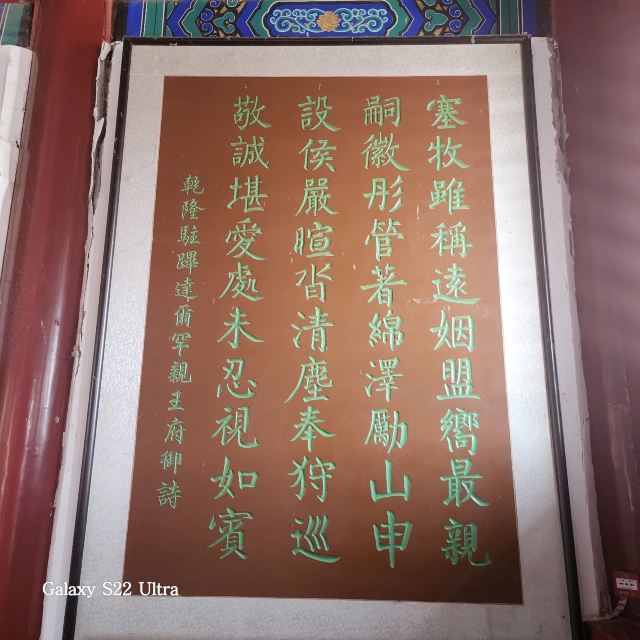 塞牧雖稱遠姻盟嚮最親
嗣徽彤管著綿澤勵山申
設侯嚴暄沓清塵奉狩巡
敬誠堪愛處未忍視如賓
乾隆駐蹕達爾罕親王府御詩
Galaxy S22 Ultra